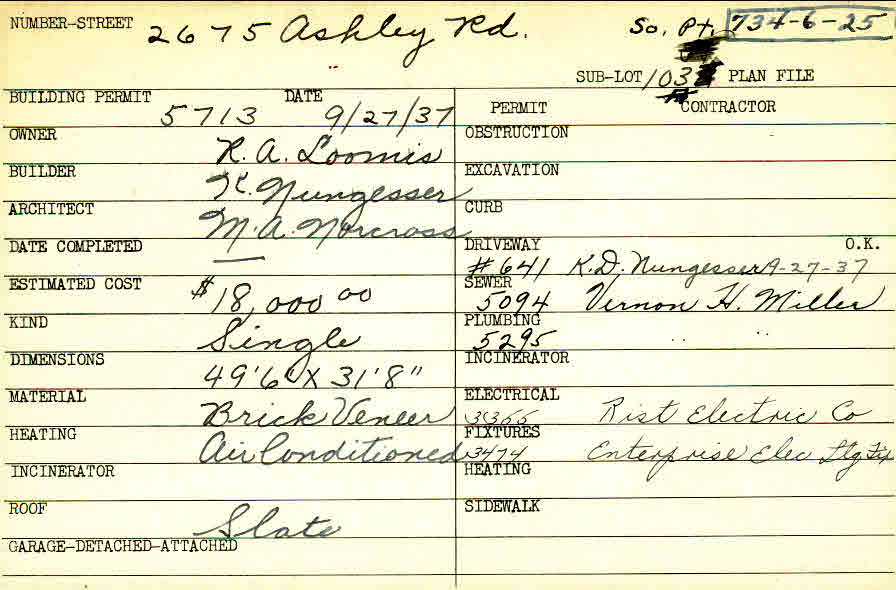 NUMBER-STREET 2675 Ashley Rd. So. Pt. 734-6-25
SUB-LOT 103 PLAN FILE
BUILDING PERMIT 5713 DATE 9/27/37
PERMIT CONTRACTOR
OWNER R. A. Loomis
OBSTRUCTION
BUILDER K. Nungesser
EXCAVATION
ARCHITECT M. A. Norcross
CURB
DATE COMPLETED —
DRIVEWAY #641 K. D. Nungesser 9-27-37 O.K.
ESTIMATED COST $18,000 00
SEWER 5094 Vernon H. Miller
KIND Single
PLUMBING 5295 " "
DIMENSIONS 49'6" X 31'8"
INCINERATOR
MATERIAL Brick Veneer
ELECTRICAL 3365 Rist Electric Co
HEATING Air Conditioned
FIXTURES 3474 Enterprise Elec Ltg Fix
INCINERATOR
HEATING
ROOF Slate
SIDEWALK
GARAGE-DETACHED-ATTACHED